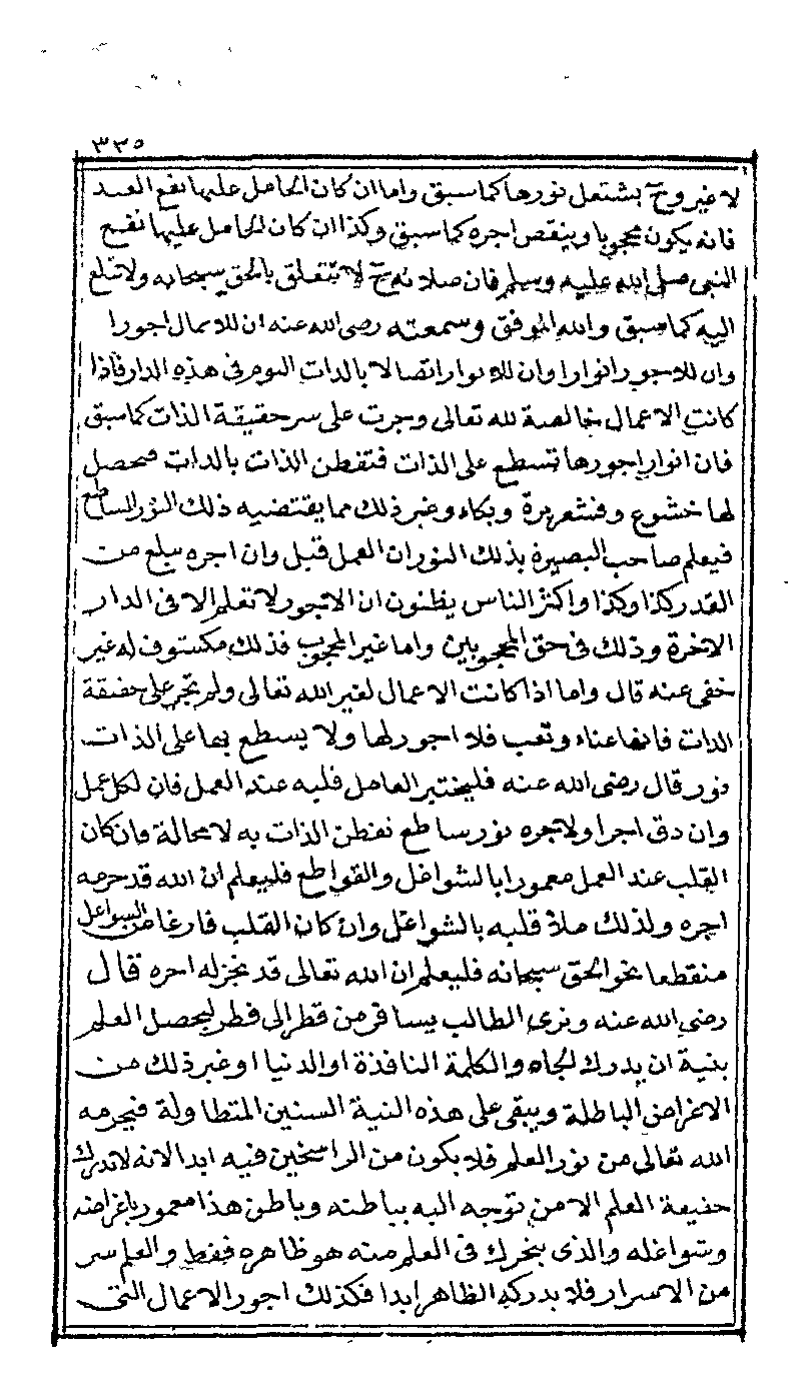 ٣٣٥
لا غير وح يشتعل نورها كما سبق واما ان كان الحامل عليها نفع العبد
فانه يكون محجوبا وينقص اجره كما سبق وكذا ان كان الحامل عليها نفع
النبي صلى الله عليه وسلم فان صلاته ح لا تتعلق بالحق سبحانه ولا تبلغ
اليه كما سبق والله الموفق وسمعته رضى الله عنه ان للاعمال اجورا
وان للاجور انوارا وان للانوار اتصالا بالذات اليوم فى هذه الدار فاذا
كانت الاعمال خالصة لله تعالى وجرت على سر حقيقة الذات كما سبق
فان انوار اجورها تسطع على الذات فتفطن الذات بالذات فيحصل
لها خشوع وقشعريرة وبكاء وغير ذلك مما يقتضيه ذلك النور الساطع
فيعلم صاحب البصيرة بذلك النور ان العمل قبل وان اجره يبلغ من
القدر كذا وكذا واكثر الناس يظنون ان الاجور لا تعلم الا فى الدار
الاخرة وذلك فى حق المحجوبين واما غير المحجوب فذلك مكشوف له غير
خفى عنه قال واما اذا كانت الاعمال لغير الله تعالى ولم تجر على حقيقة
الذات فانها عناء وتعب فلا اجور لها ولا يسطع بها على الذات
نور قال رضى الله عنه فليختبر العامل قلبه عند العمل فان لكل عمل
وان دق اجرا ولاجره نور ساطع تفطن الذات به لا محالة فان كان
القلب عند العمل معمورا بالشواغل والقواطع فليعلم ان الله قد حرمه
اجره ولذلك ملأ قلبه بالشواغل وان كان القلب فارغا من الشواغل
منقطعا نحو الحق سبحانه فليعلم ان الله تعالى قد نجز له اجره قال
رضى الله عنه ونرى الطالب يسافر من قطر الى قطر ليحصل العلم
بنية ان يدرك الجاه والكلمة النافذة او الدنيا او غير ذلك من
الاغراض الباطلة ويبقى على هذه النية السنين المتطاولة فيحرمه
الله تعالى من نور العلم فلا يكون من الراسخين فيه ابدا لانه لا تدرك
حقيقة العلم الا من توجه اليه بباطنه وباطن هذا معمور باغراضه
وشواغله والذى يتحرك فى العلم منه هو ظاهره فقط والعلم سر
من الاسرار فلا يدركه الظاهر ابدا فكذلك اجور الاعمال التى